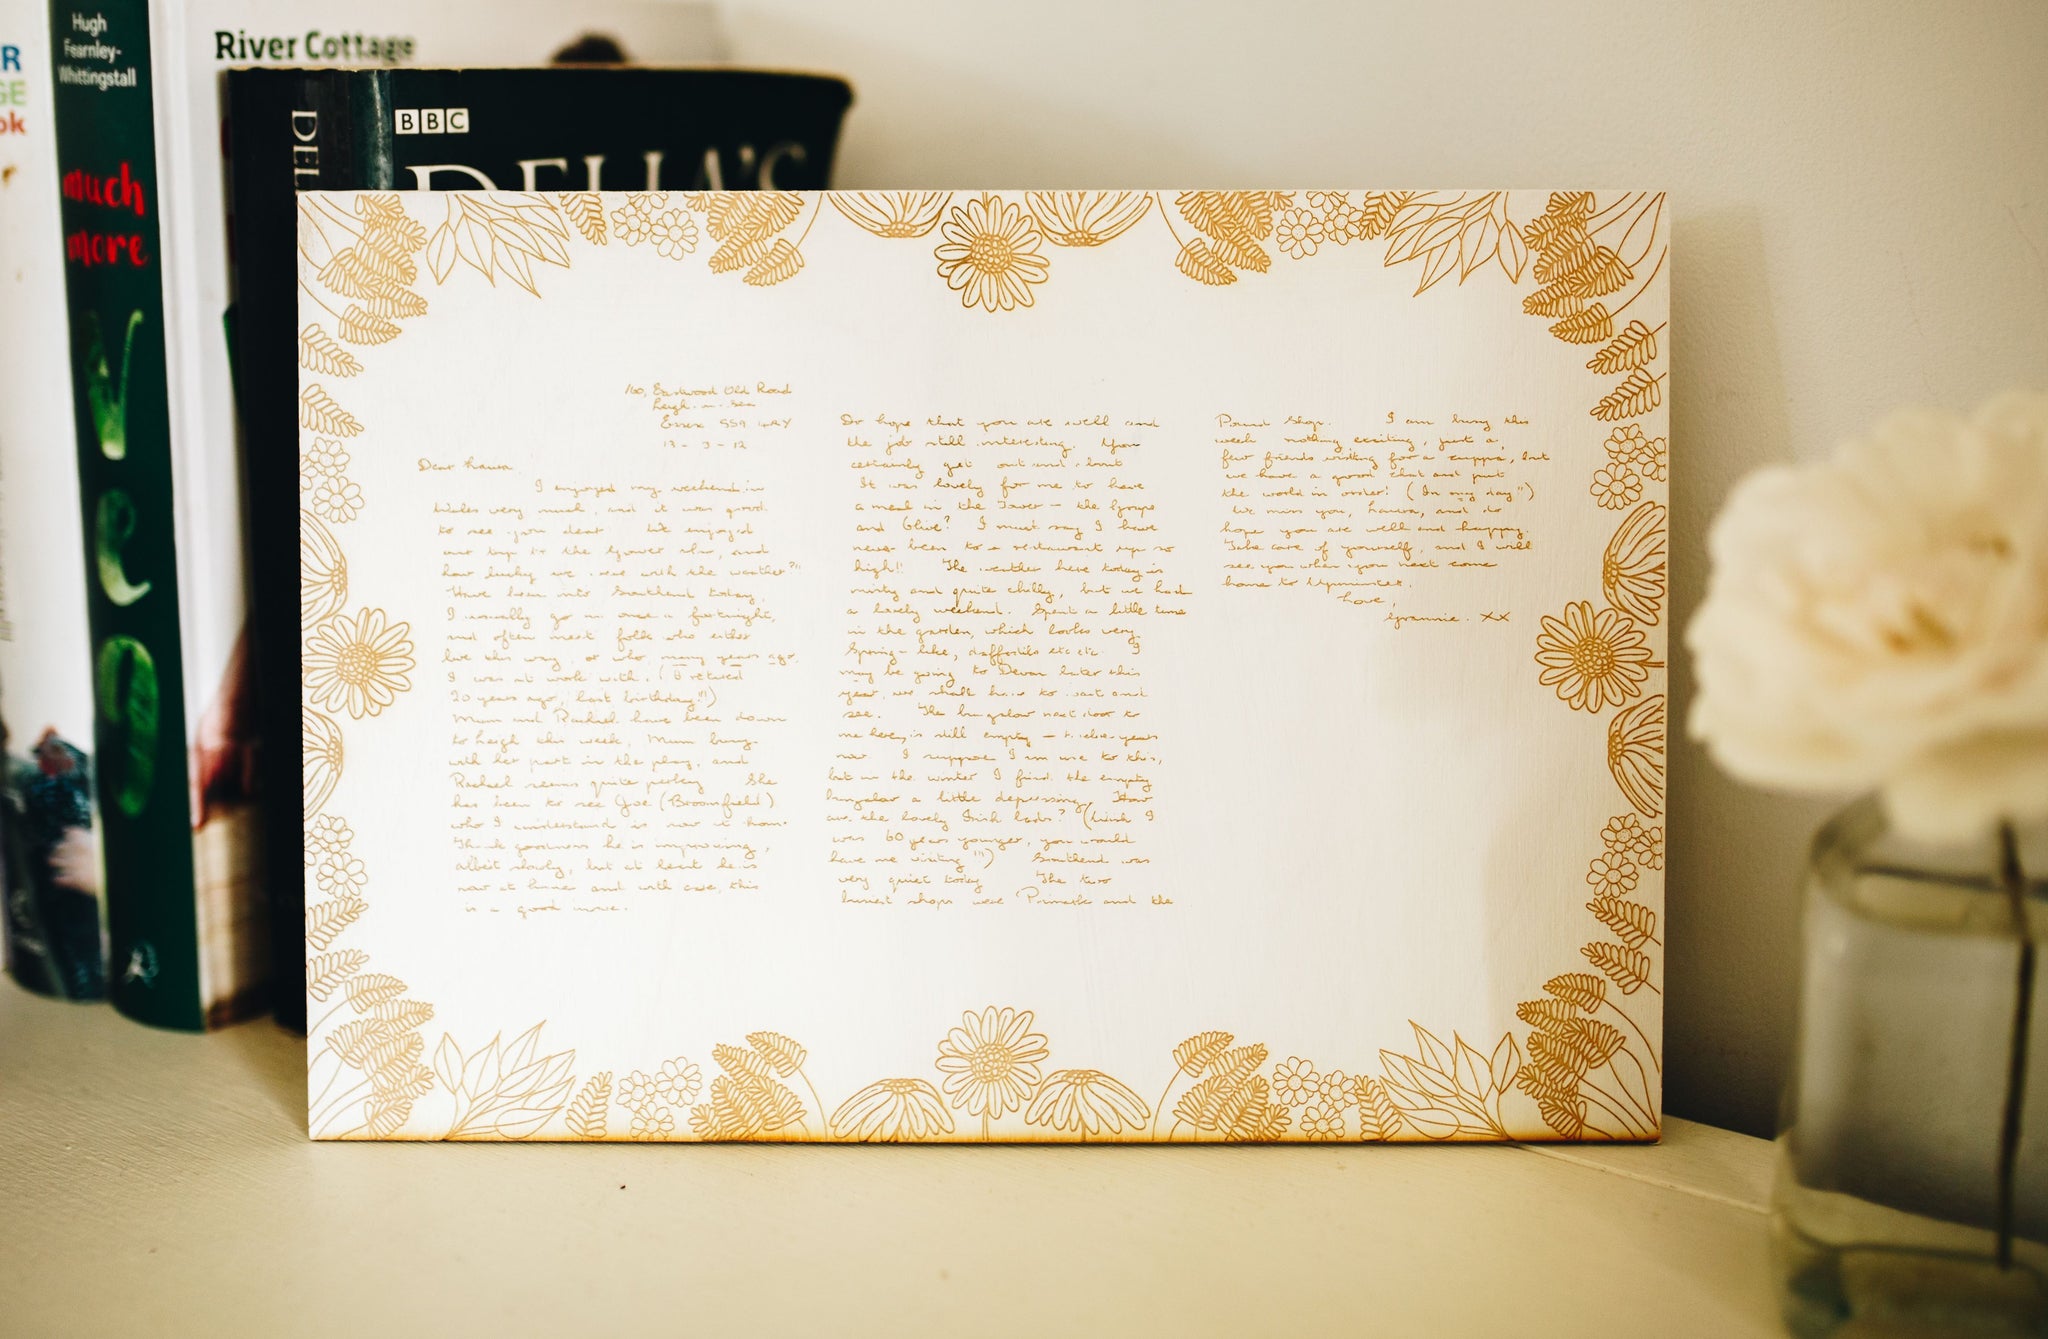 Hugh
Fearnley-
Whittingstall
much
more
VEG
River Cottage
BBC
DELIA'S
160, Eastwood Old Road
Leigh-on-Sea
Essex SS9 4RY
13 - 3 - 12
Dear Laura,
I enjoyed my weekend in
Wales very much, and it was good
to see you dear! We enjoyed
our trip to the Gower also, and
how lucky we were with the weather?!!
Have been into Southend today,
I usually go in once a fortnight,
and often meet folk who either
live this way, or who, many years ago,
I was at work with. (I retired
20 years ago, last birthday!!!)
Mum and Rachel have been down
to Leigh this week, Mum busy
with her part in the play, and
Rachel seems quite perky. She
has been to see Joe (Broomfield)
who I understand is now at home
Thank goodness he is improving,
albeit slowly, but at least he is
now at home and with care, this
is a good move.
Do hope that you are well and
the job still interesting. You
certainly get out and about
It was lovely for me to have
a meal in the Tower - the Grape
and Olive? I must say I have
never been to a restaurant up so
high!! The weather here today is
misty and quite chilly, but we had
a lovely weekend. Spent a little time
in the garden, which looks very
Spring-like, daffodils etc etc. I
may be going to Devon later this
year, we shall have to wait and
see. The bungalow next door to
me here, is still empty - years
now. I suppose I am use to this,
but in the winter I find the empty
bungalow a little depressing. How
are the lovely Irish lads? (think I
was 60 years younger, you would
have me visiting!!!) Southend was
very quiet today. The two
busiest shops were Primark and the
Pound Shop. I am busy this
week nothing exciting, just a
few friends visiting for a cuppa, but
we have a good chat and put
the world in order! (In my day")
We miss you, Laura, and do
hope you are well and happy.
Take care of yourself, and I will
see you when you next come
home to Upminster.
Love,
Grannie. XX